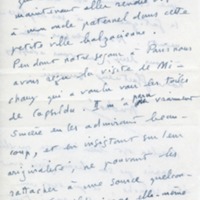 maintenant aller rendre
à mon oncle paternel dans cette
petite ville balzacienne.
Pendant notre séjour à Paris nous
avons reçu la visite de Mi-
chaux qui a voulu voir les toiles
de Il m'a paru vraiment
sincère en les admirant beau-
coup, et en insistant sur leur
originalité, ne pouvant les
rattacher à une source quelcon-
elle-même